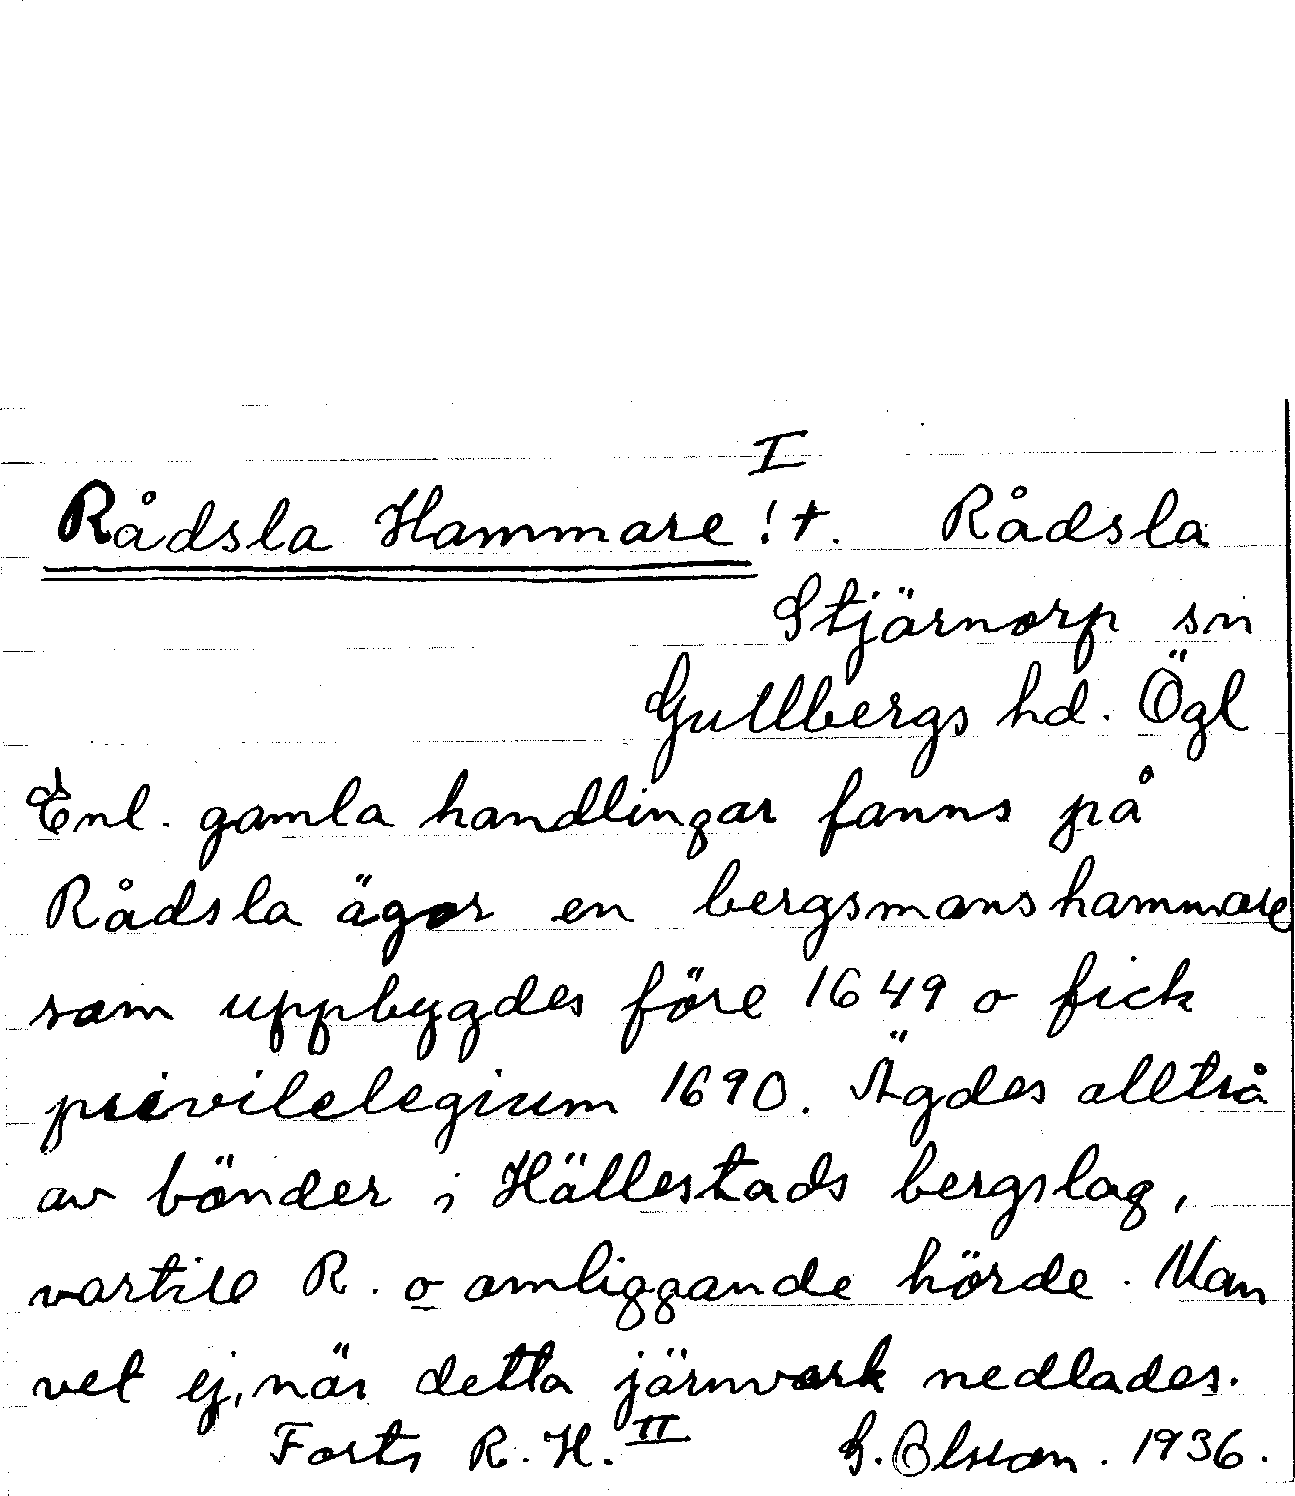 I
Rådsla Hammare !+. Rådsla
Stjärnorp sn
Gullbergs hd. Ögl
Enl. gamla handlingar fanns på
Rådsla ägor en bergsmanshammare
som uppbygdes före 1649 o fick
privilelegium 1690. Ägdes alltså
av bönder i Hällestads bergslag,
vartill R. o omliggande hörde. Man
vet ej, när detta järnvark nedlades.
Forts R. H. II G. Olsson. 1936.